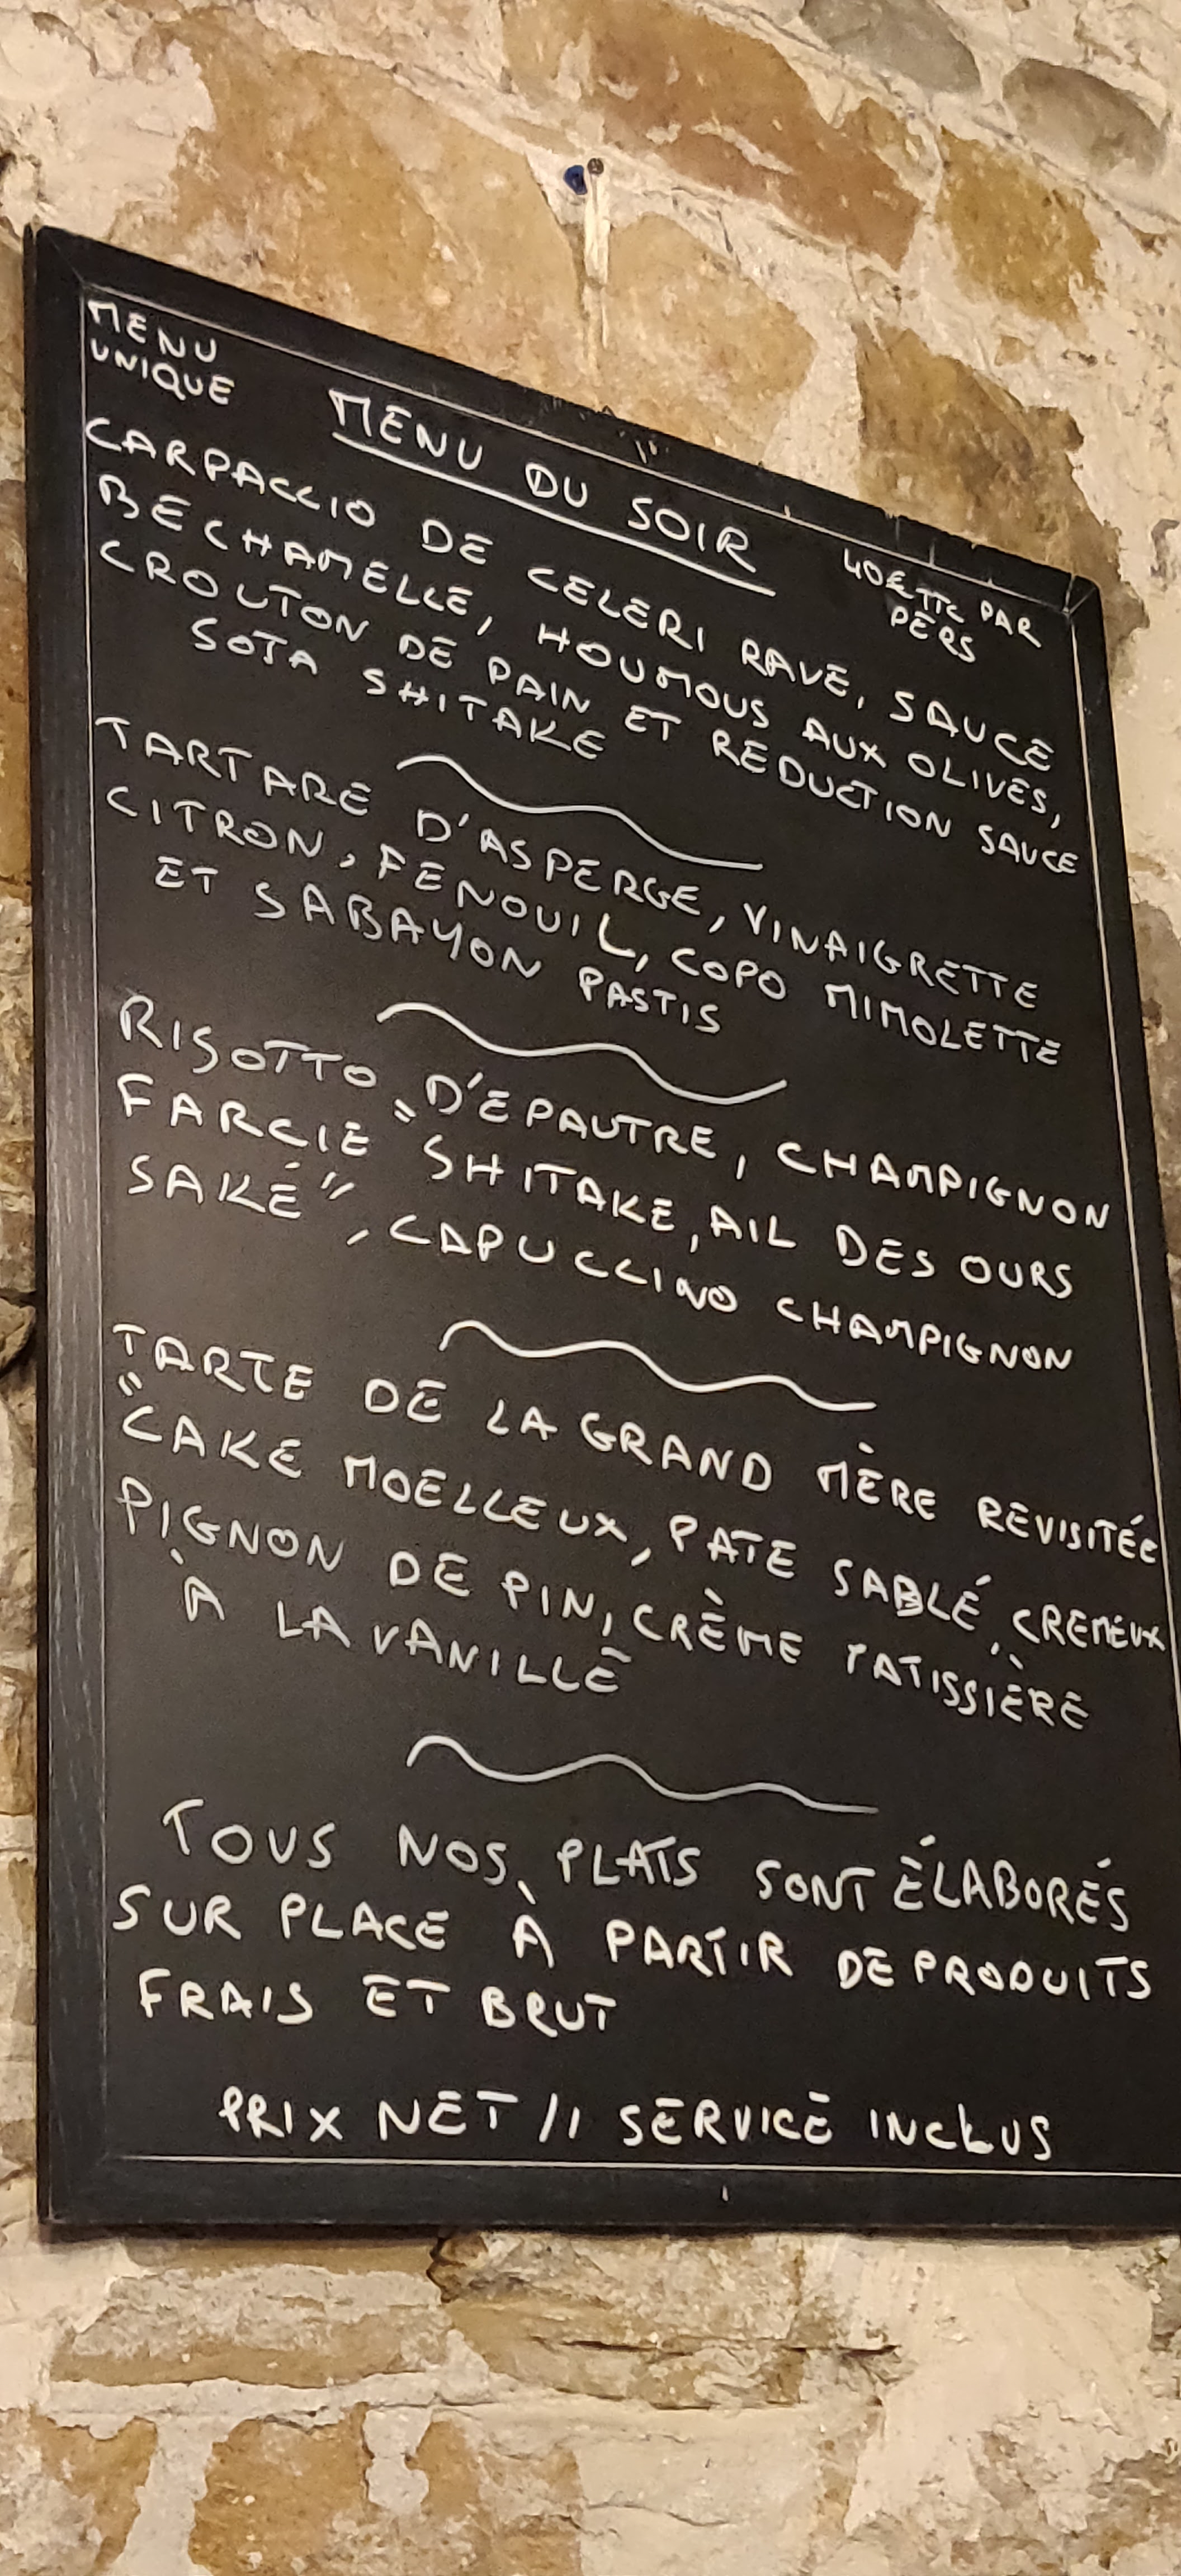 MENU
UNIQUE
MENU DU SOIR
40€ TTC PAR
PERS
CARPACCIO DE CELERI RAVE, SAUCE
BECHAMELLE, HOUMOUS AUX OLIVES,
CROUTON DE PAIN ET REDUCTION SAUCE
SOJA SHITAKE
TARTARE D'ASPERGE, VINAIGRETTE
CITRON, FENOUIL, COPO MIMOLETTE
ET SABAYON PASTIS
RISOTTO D'EPAUTRE, CHAMPIGNON
FARCIE "SHITAKE, AIL DES OURS
SAKÉ", CAPUCCINO CHAMPIGNON
TARTE DE LA GRAND MÈRE REVISITÉE
"CAKE MOELLEUX, PATE SABLÉ, CREMEUX
PIGNON DE PIN, CRÈME PATISSIÈRE
À LA VANILLE
TOUS NOS PLATS SONT ÉLABORÉS
SUR PLACE À PARTIR DE PRODUITS
FRAIS ET BRUT
PRIX NET // SERVICE INCLUS